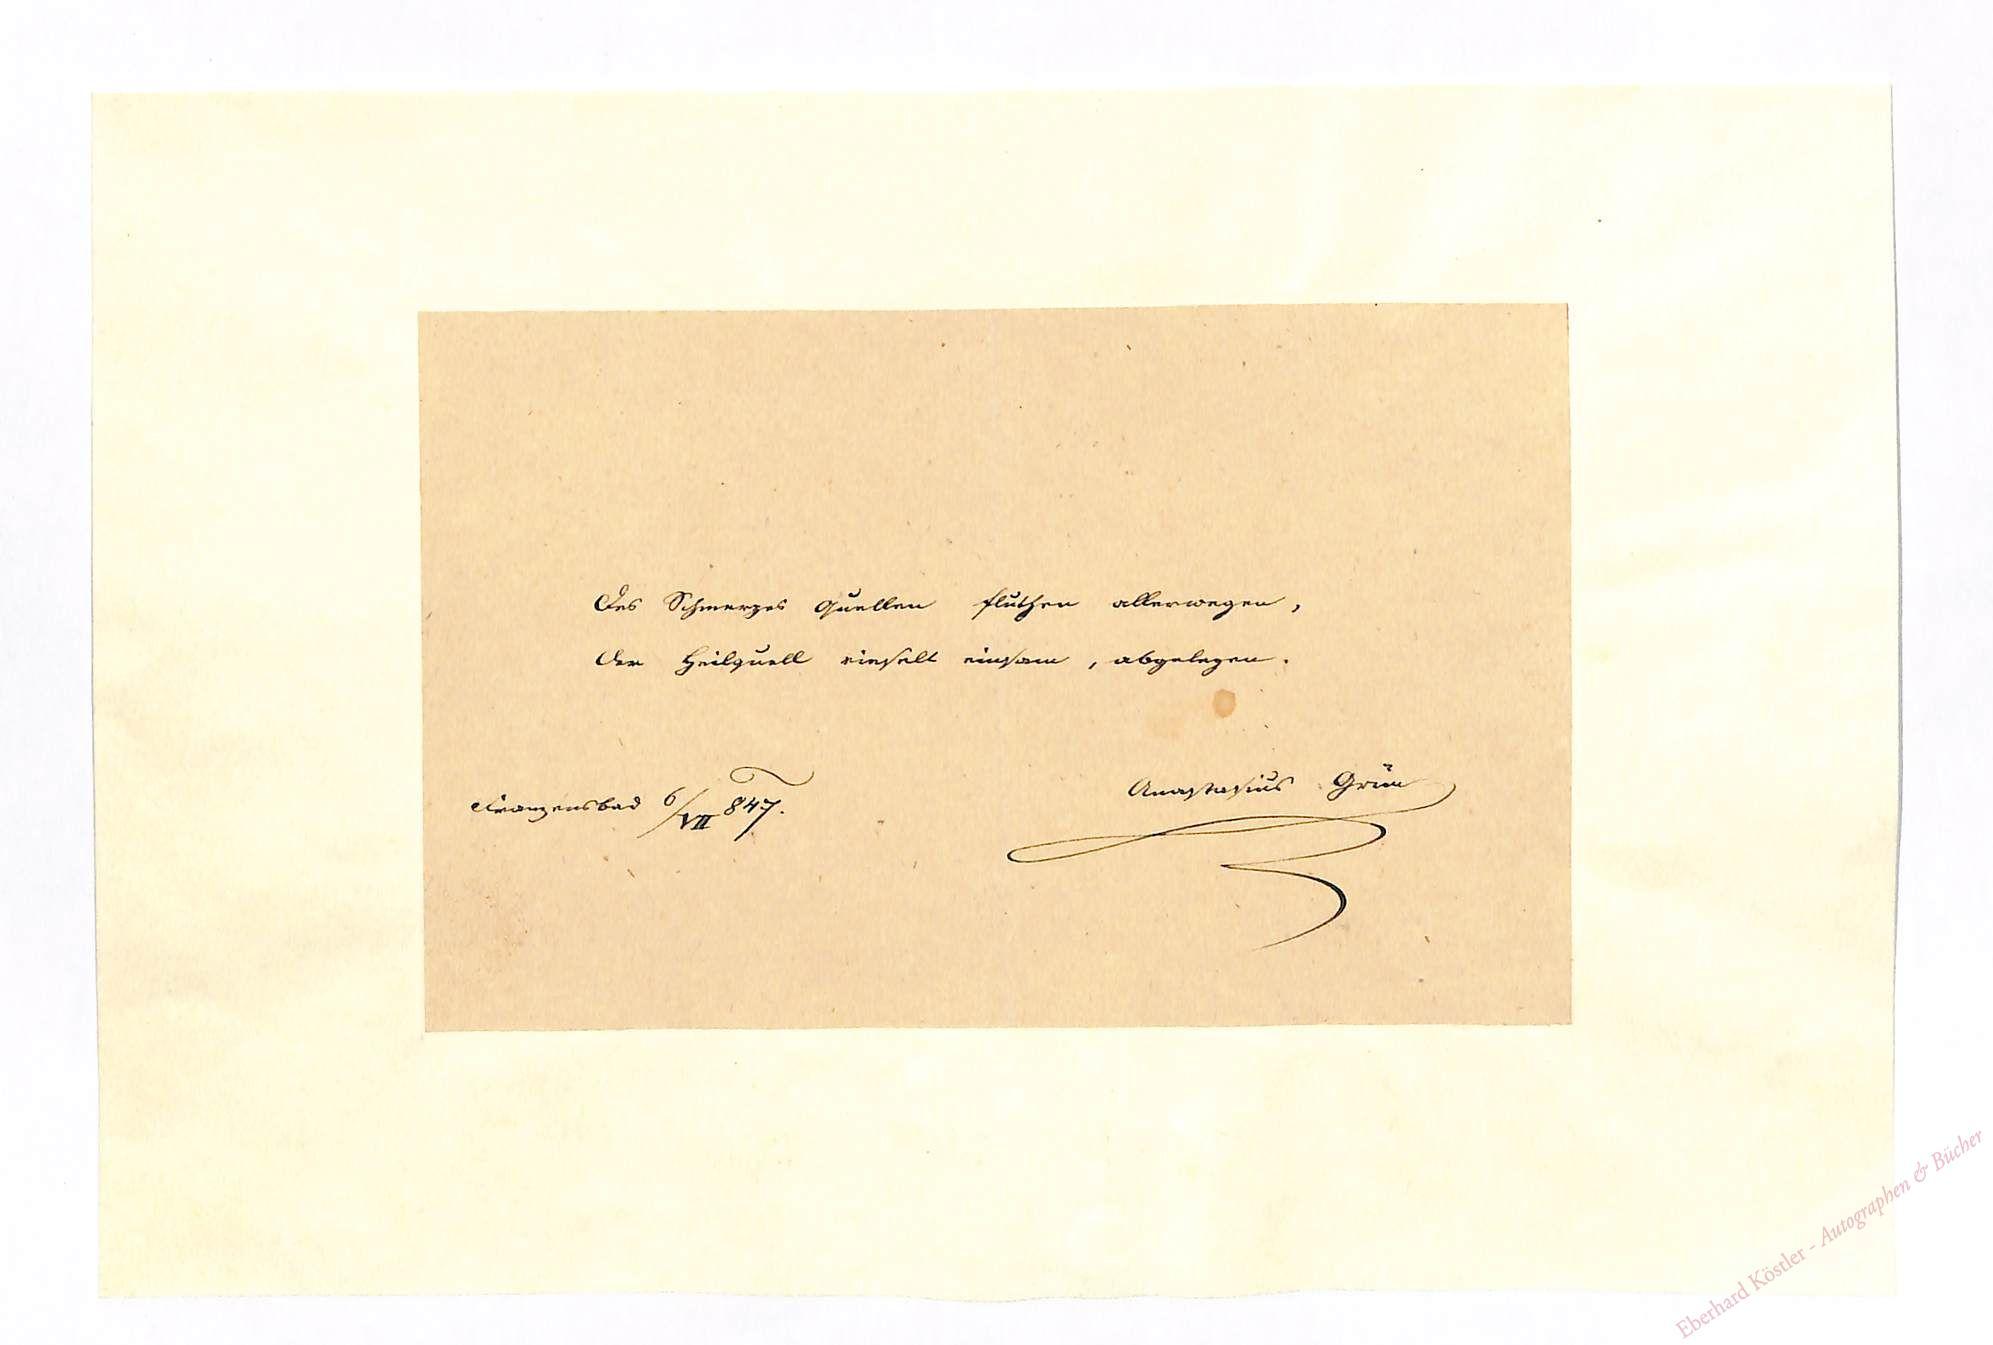 Des Schmerzes Quellen fluthen allerwegen,
Der Heilquell rieselt einsam, abgelegen.
Franzensbad 6/VII 847.
Anastasius Grün
Eberhard Köstler - Autographen & Bücher